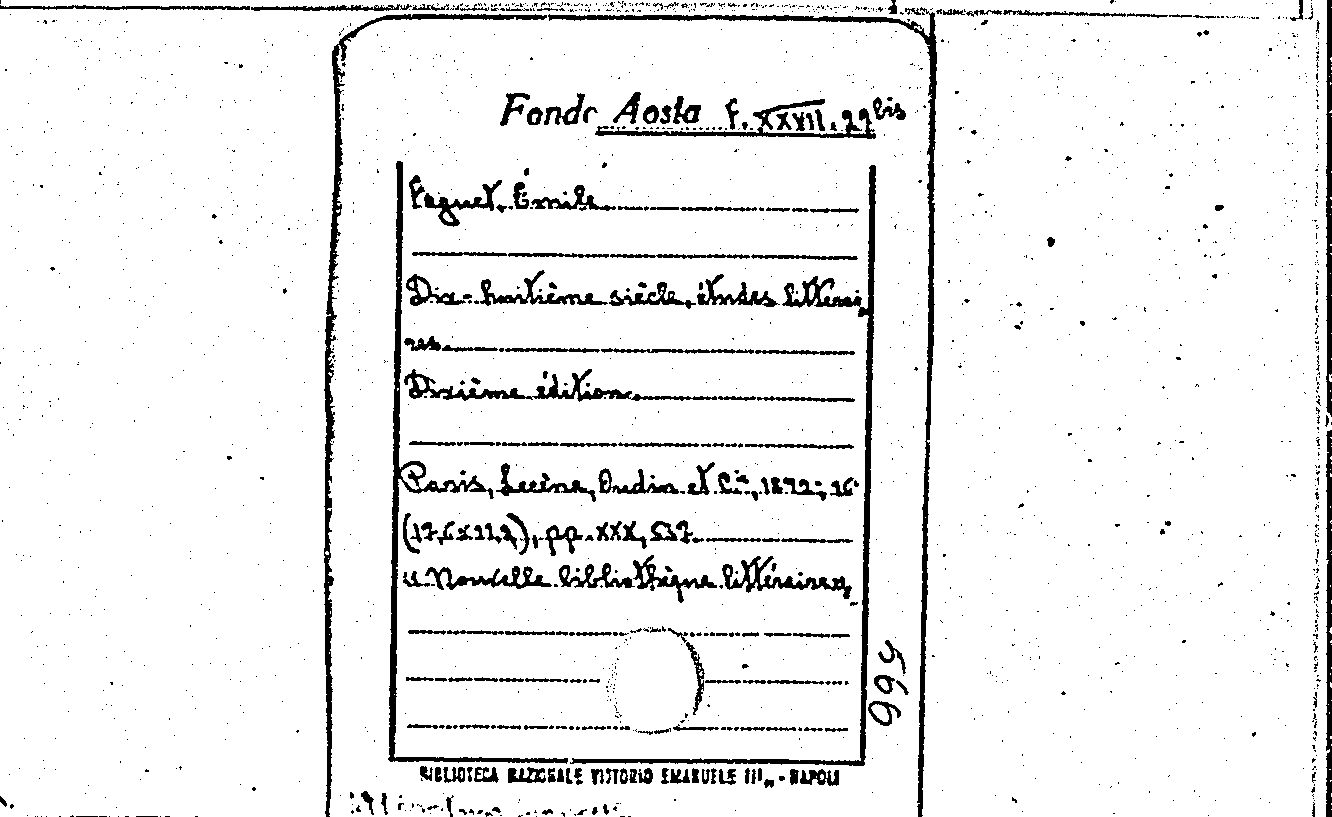 Fondo Aosta f. XXVII. 29 bis
Faguet, Émile.
Dix-huitième siècle, études littérai-
res.
Dixième édition.
Paris, Lecène, Oudin et C.ie, 1892; 16°
(17,6x11,2), pp. XXX, 537.
« Nouvelle bibliothèque littéraire »,
566
BIBLIOTECA NAZIONALE VITTORIO EMANUELE III„ - NAPOLI